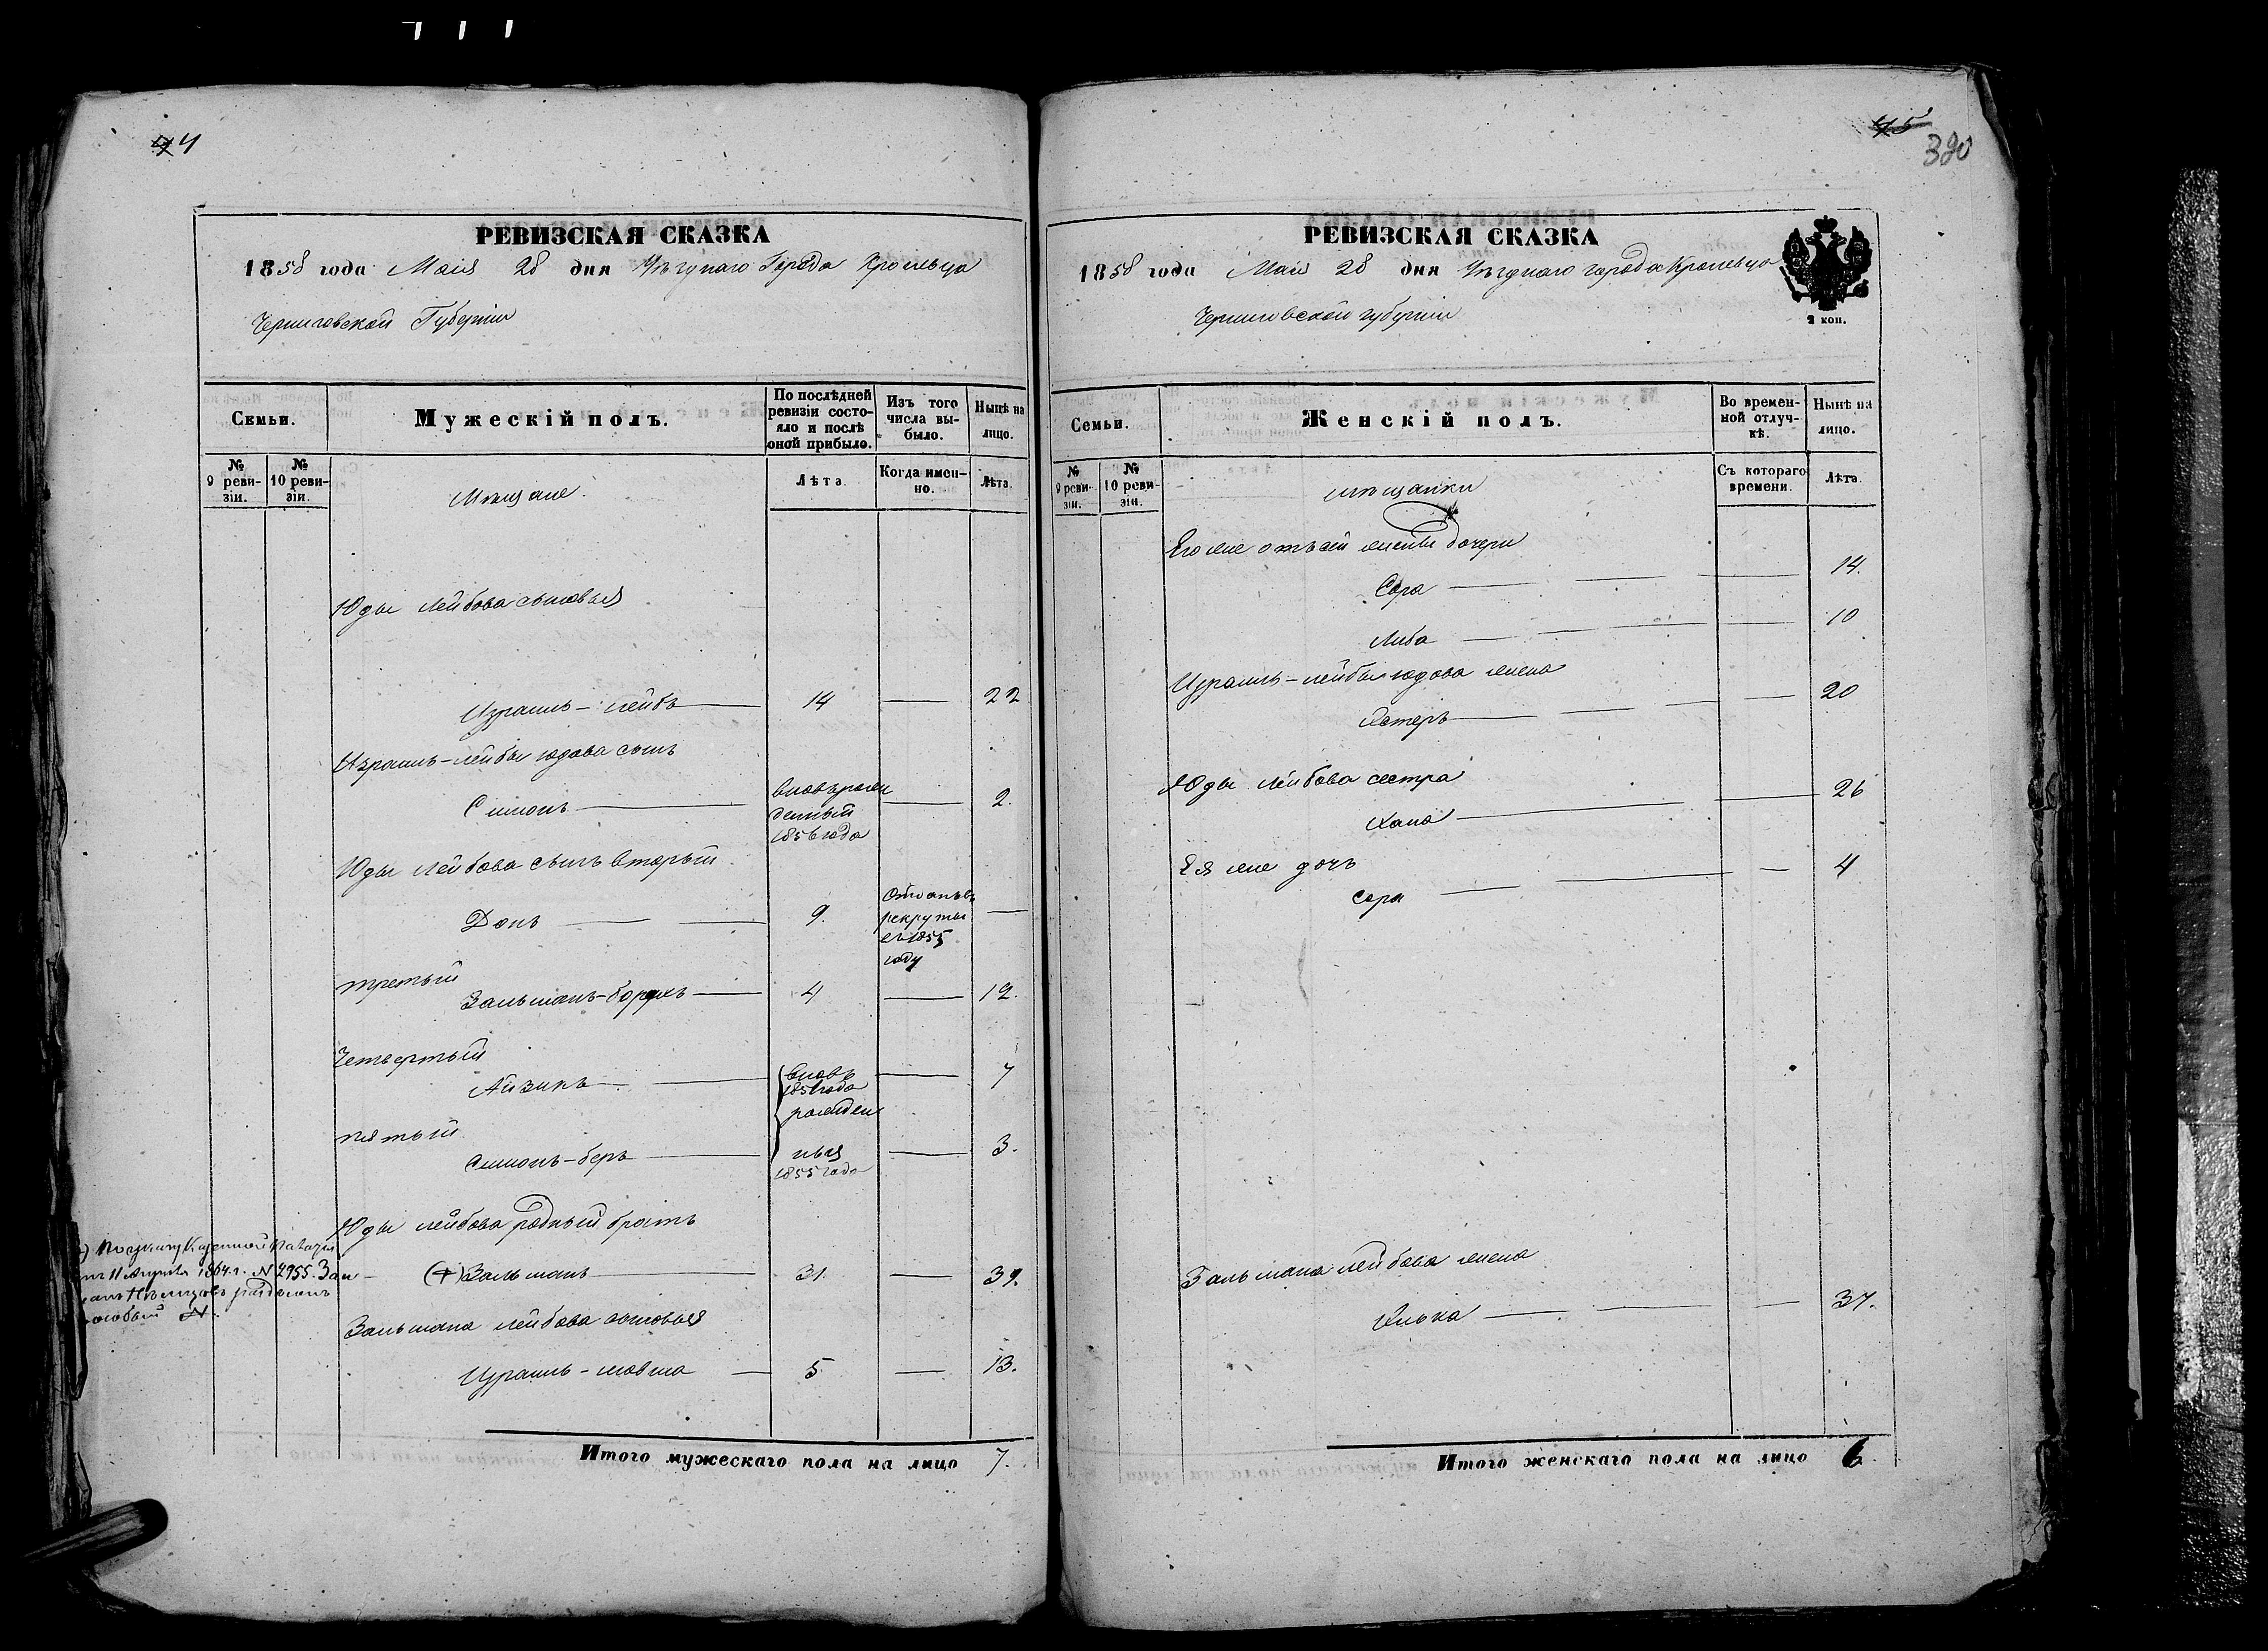 44
РЕВИЗСКАЯ СКАЗКА
1858 года Маія 28 дня Уѣзднаго Города Кролевца
Черниговской Губерніи
Семьи.
Мужескій полъ.
По послѣдней ревизіи состояло и послѣ оной прибыло.
Изъ того числа выбыло.
Нынѣ на лицо.
№ 9 ревизіи.
№ 10 ревизіи.
Мѣщане.
Лѣта.
Когда именно.
Лѣта.
Юды Лейбова сыновья
Израиль-Лейбъ 14 22
Израиль-Лейбы Юдова сынъ
Симонъ вновьрожденный 1856 года 2.
Юды Лейбова сынъ вторый
Донъ 9. Отданъ въ рекруты въ 1855 году
третый
Зальманъ-Борухъ 4 12.
Четвертый
Айзикъ вновь 1851 года 7
рожден
пятый
Симонъ-беръ ныя 1855 года 3.
Юды Лейбова родный братъ
По указу Казенной Палаты
11 Августа 1864 г. N 2955. Зал
особый N.
(+) Зальманъ 31. 39.
Зальмана Лейбова сыновья
Израиль-мовша 5 13.
Итого мужескаго пола на лицо 7.
45
380
РЕВИЗСКАЯ СКАЗКА
1858 года Маія 28 дня Уѣзднаго города Кролевца
Черниговской губерніи
2 коп.
Семьи.
Женскій полъ.
Во временной отлучкѣ.
Нынѣ на лицо.
№ 9 ревизіи.
№ 10 ревизіи.
мѣщанки
Съ котораго времени.
Лѣта.
Его же отъ сей жены дочери
Сора 14.
Либа 10
Израиль-Лейбы Юдова жена
Естеръ 20
Юды Лейбова сестра
Хана 26
Ея же дочь
Сора 4
Зальмана Лейбова жена
Элька 37.
Итого женскаго пола на лицо 6